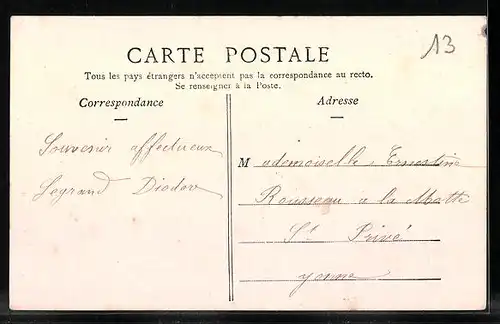 13
CARTE POSTALE
Tous les pays étrangers n'acceptent pas la correspondance au recto.
Se renseigner à la Poste.
Correspondance
Adresse
Souvenir affectueux
Legrand Diodore
Mademoiselle Ernestine
Rousseau à la Motte
St Privé
Yonne